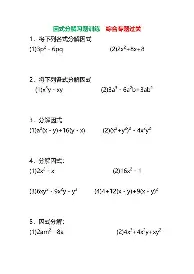 因式分解习题训练 综合专题过关
1．将下列各式分解因式
(1)3p²﹣6pq (2)2x²+8x+8
2．将下列各式分解因式
(1)x³y﹣xy (2)3a³﹣6a²b+3ab²
3．分解因式
(1)a²(x﹣y)+16(y﹣x) (2)(x²+y²)²﹣4x²y²
4．分解因式：
(1)2x²﹣x (2)16x²﹣1
(3)6xy²﹣9x²y﹣y³ (4)4+12(x﹣y)+9(x﹣y)²
5．因式分解：
(1)2am²﹣8a (2)4x³+4x²y+xy²